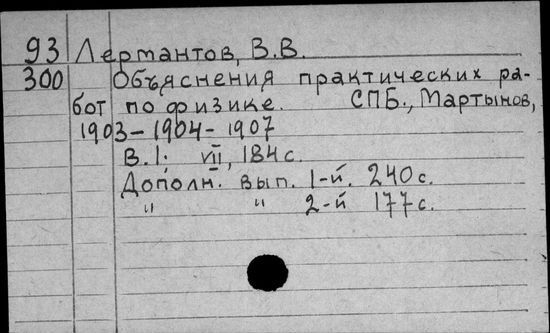 93 Лермантов, В.В.
300 Объяснения практических ра-
бот по физике. СПБ., Мартынов,
1903-1904-1907
В.I. VII, 184с.
Дополн. вып. 1-й. 240с.
" " 2-й 177с.